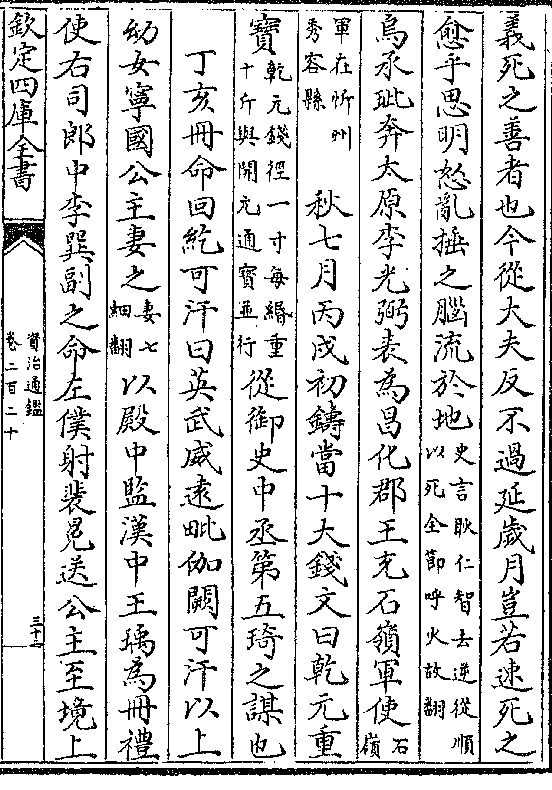 義死之善者也今從大夫反不過延歲月豈若速死之
愈乎思明怒亂捶之腦流於地史言耿仁智去逆從順
以死全節呼火故翻
烏承玼奔太原李光弼表為昌化郡王充石嶺軍使石嶺
軍在忻州
秀容縣
秋七月丙戌初鑄當十大錢文曰乾元重
寶乾元錢徑一寸每緡重
十斤與開元通寶並行
從御史中丞第五琦之謀也
丁亥冊命回紇可汗曰英武威遠毗伽闕可汗以上
幼女寧國公主妻之妻七
細翻
以殿中監漢中王瑀為冊禮
使右司郎中李巽副之命左僕射裴冕送公主至境上
欽定四庫全書
資治通鑑
卷二百二十
三十二